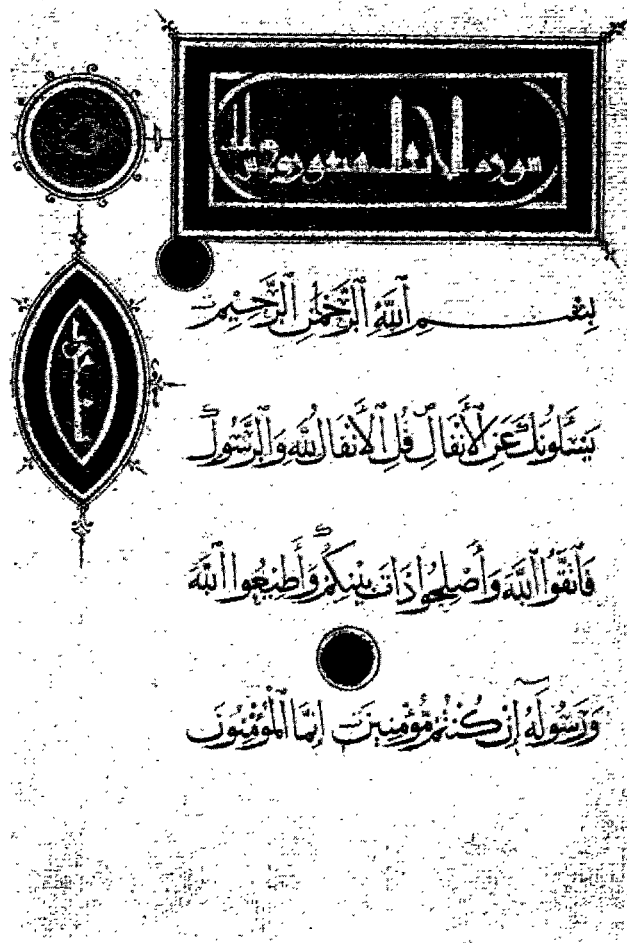 سورة الانفال سبعون وخمس
بِسْمِ ٱللَّهِ ٱلرَّحْمَٰنِ ٱلرَّحِيمِ
يَسْأَلُونَكَ عَنِ ٱلْأَنْفَالِ قُلِ ٱلْأَنْفَالُ لِلَّهِ وَٱلرَّسُولِ
فَٱتَّقُوا ٱللَّهَ وَأَصْلِحُوا ذَاتَ بَيْنِكُمْ وَأَطِيعُوا ٱللَّهَ
وَرَسُولَهُ إِنْ كُنْتُمْ مُؤْمِنِينَ إِنَّمَا ٱلْمُؤْمِنُونَ